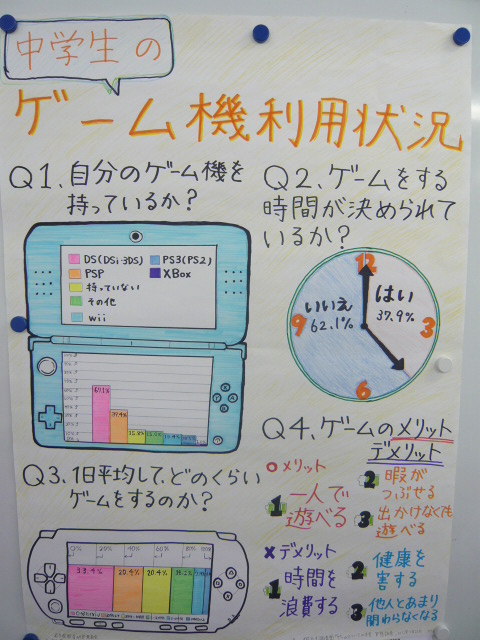 中学生の
ゲーム機利用状況
Q1、自分のゲーム機を
持っているか?
DS(DSi・3DS)
PS3(PS2)
PSP
XBox
持っていない
その他
wii
37.4%
Q2、ゲームをする
時間が決められて
いるか?
12
3
6
9
いいえ
62.1%
はい
37.9%
Q3、1日平均して、どのくらい
ゲームをするのか?
0%
20%
40%
60%
80%
20.4%
20.4%
Q4、ゲームのメリット
デメリット
○メリット
1 一人で
遊べる
2 暇が
つぶせる
3 出かけなくても
遊べる
×デメリット
1 時間を
浪費する
2 健康を
害する
3 他人とあまり
関わらなくなる